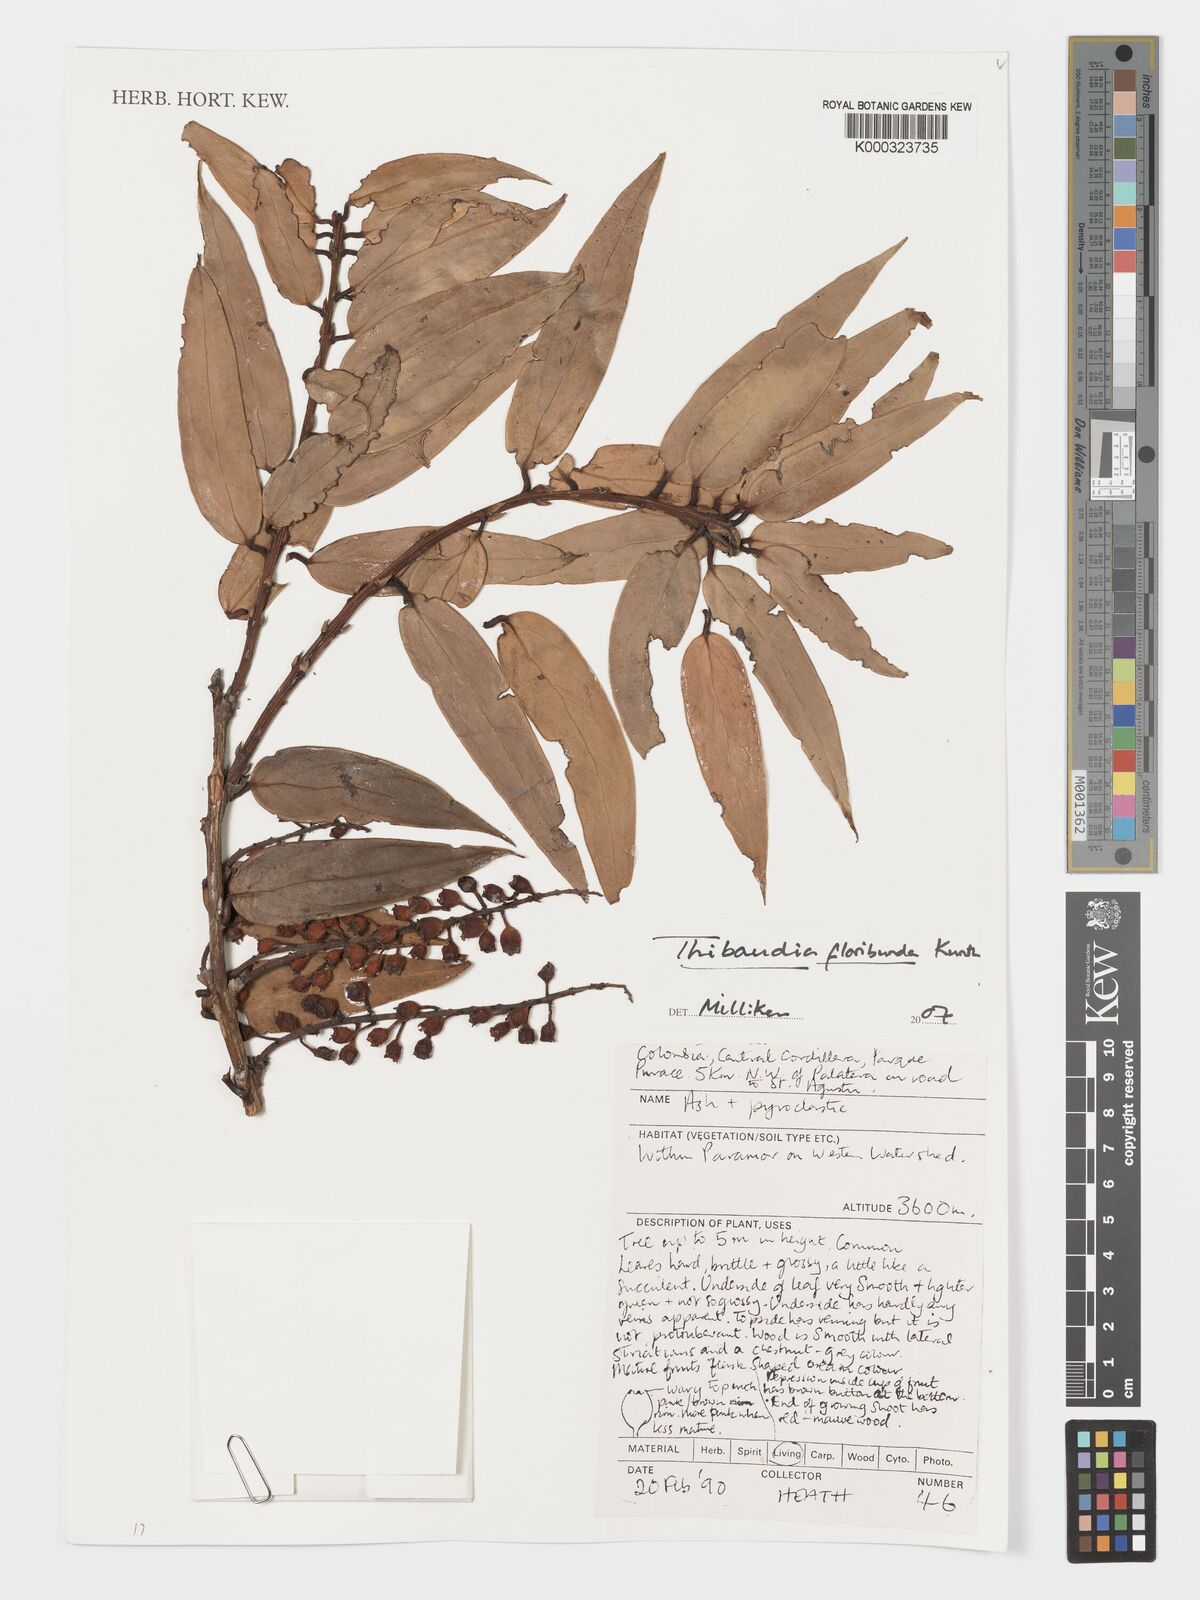 HERB. HORT. KEW.
ROYAL BOTANIC GARDENS KEW
K000323735
Thibaudia floribunda Kunth
DET. Milliken 2007
Colombia, Central Cordillera, Parque
Purace. 5km. N.W. of Paletera on road
to St. Agustin.
NAME Ash + pyroclastic
HABITAT (VEGETATION/SOIL TYPE ETC.)
Within Paramos on Western Watershed.
ALTITUDE 3600m.
DESCRIPTION OF PLANT, USES
Tree up to 5m in height. Common.
Leaves hard, brittle + glossy, a little like a
succulent. Underside of leaf very smooth + lighter
green + not so glossy. Underside has hardly any
veins apparent. Topside has veining but it is
not protuberant. Wood is smooth with lateral
striations and a chestnut-grey colour.
Mature fruits flask shaped cream colour
wavy top
pink/brown
rim. More pink when
less mature.
Depression inside cup of fruit
has brown button at the bottom.
End of growing shoot has
red-mauve wood.
MATERIAL Herb. Spirit Living Carp. Wood Cyto. Photo.
DATE COLLECTOR NUMBER
20 Feb '90 HEATH 46
17
inches
centimetres
Density
Don Williams
M001362
Kew
Royal Botanic Gardens
0 1 2 3 4 5 6 7 8 9 10
cm
colorchecker